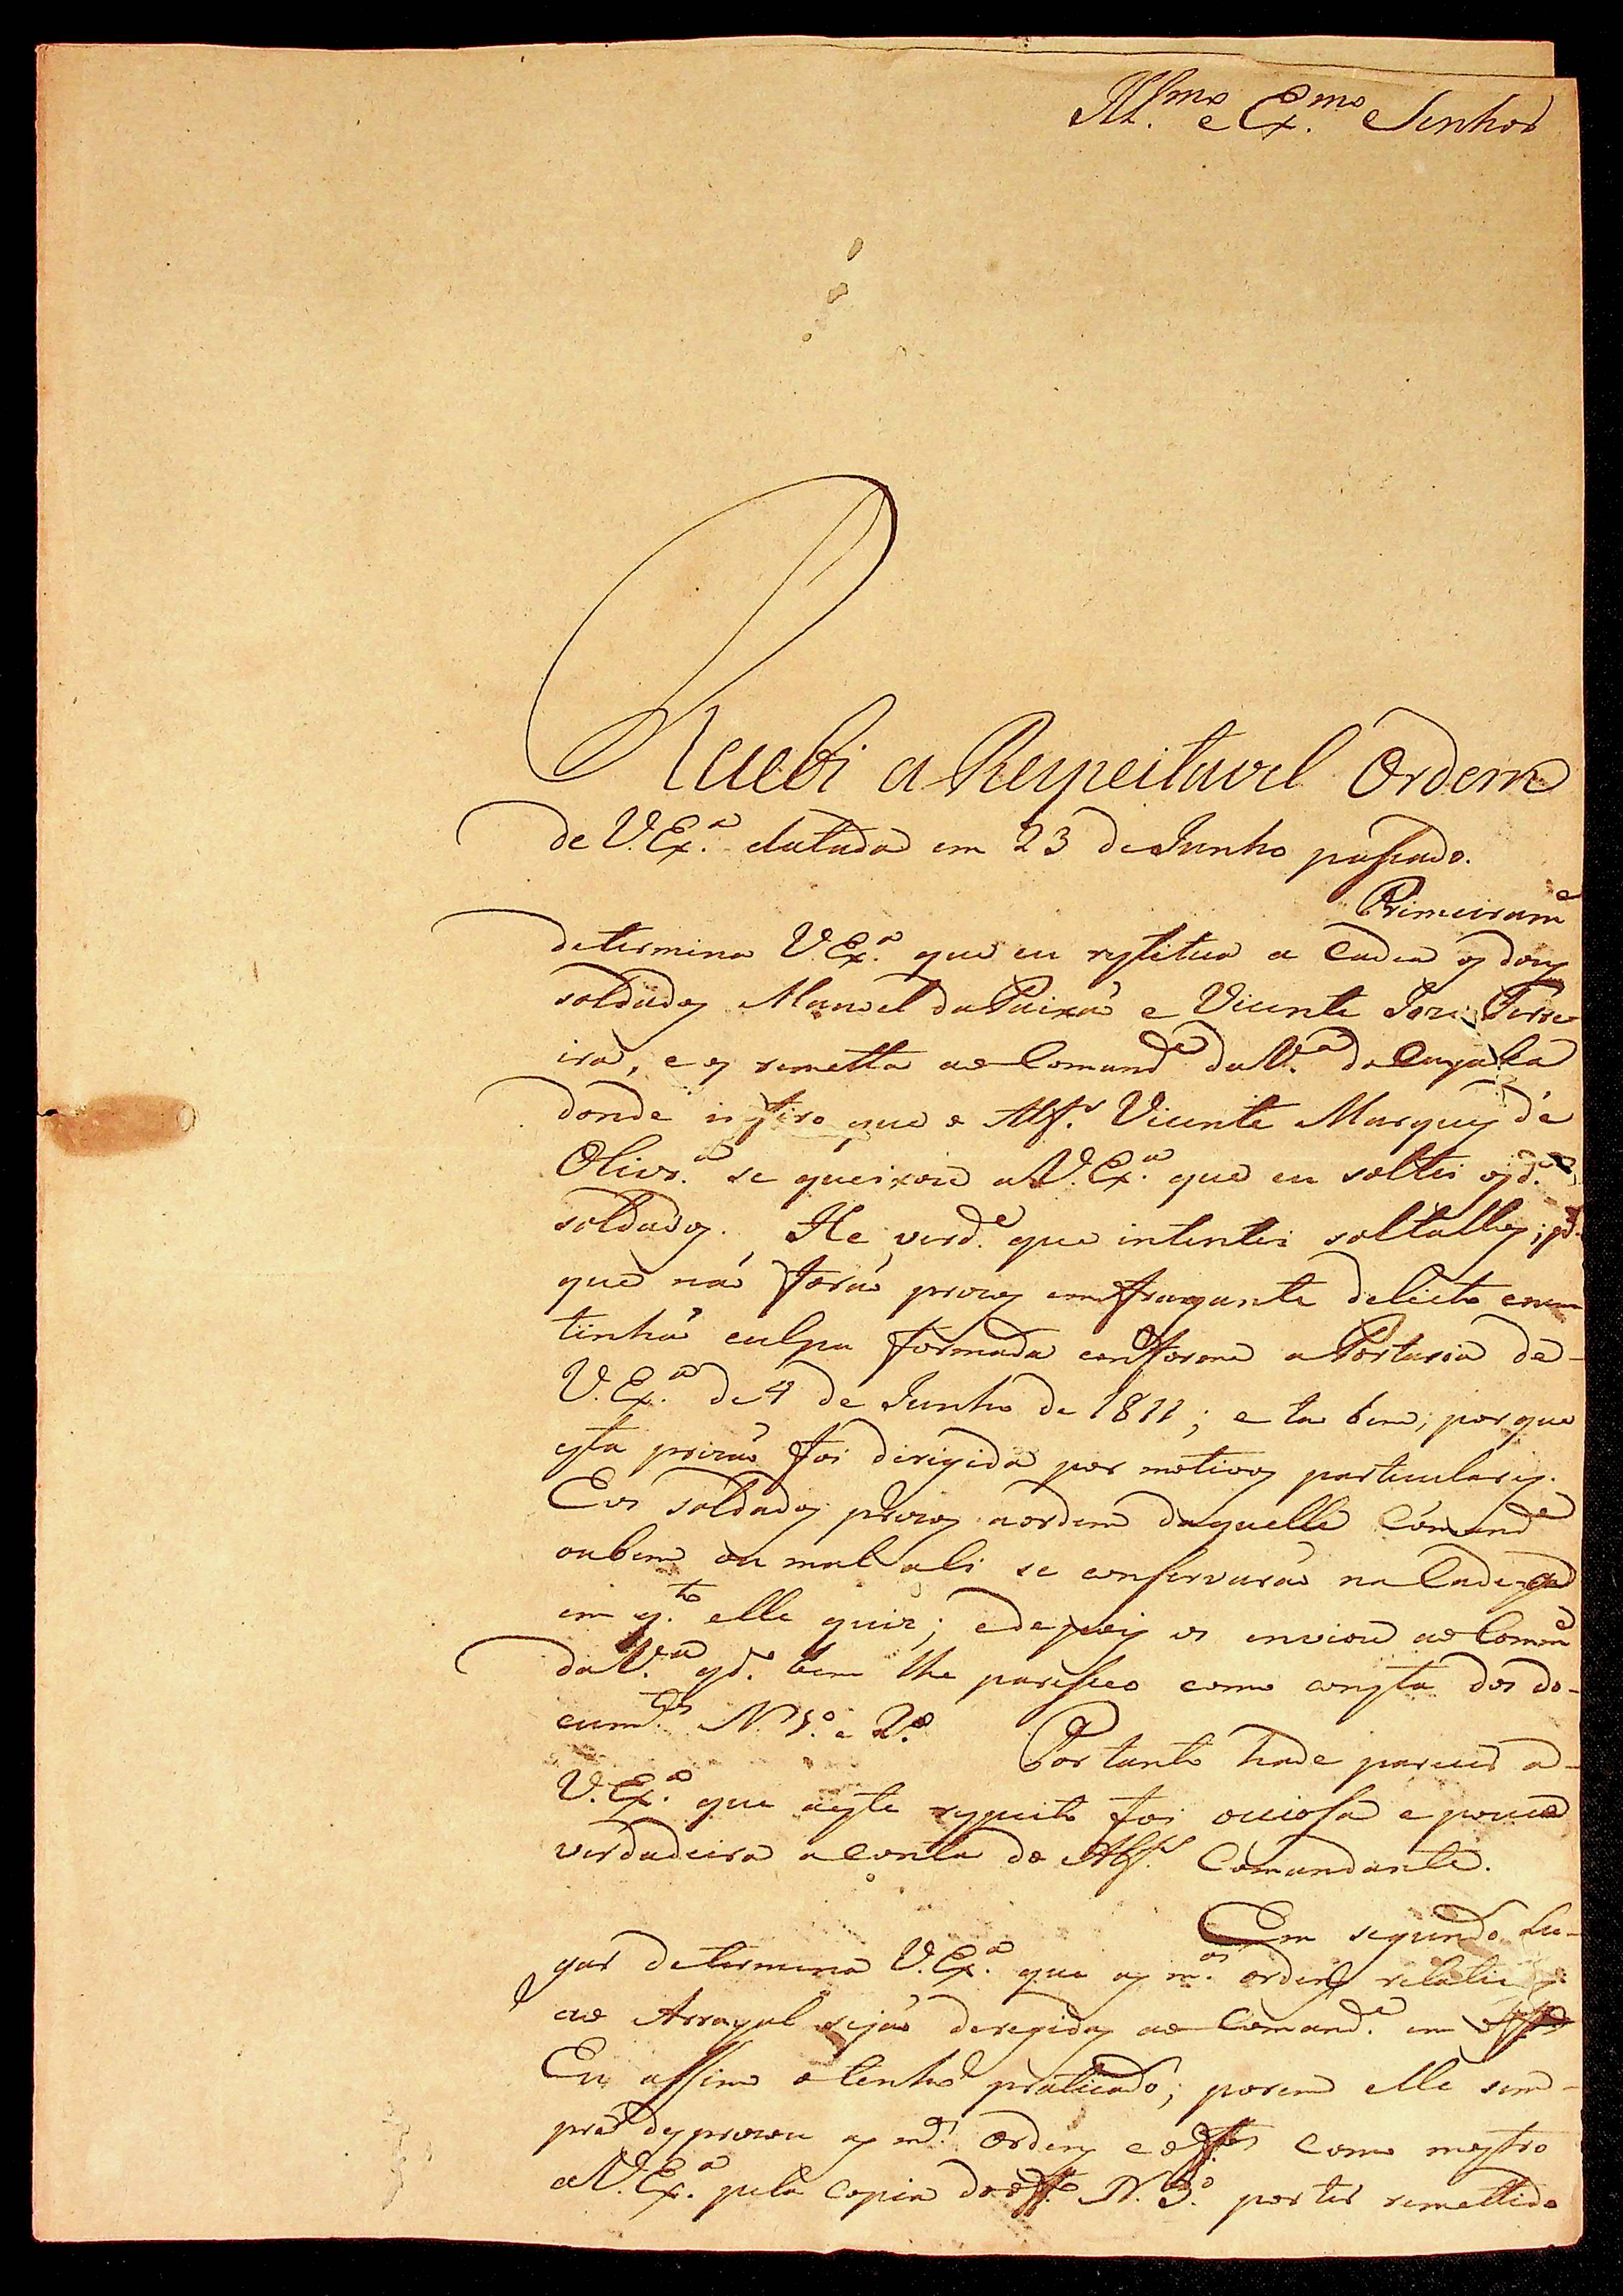 Ill.mo e Ex.mo Senhor
Recebi a Respeitavel Ordem
de V. Ex.a datada em 23 de Junho passado.
Primeiram.e
determina V. Ex.a que eu restitua a Cadea os dous
soldados Manoel da Paixaõ e Vicente Joze Ferre
ira, e os remetta ao Comand.e da V.a de
donde infiro que o Alf.s Vicente Marques de
Olivr.a se queixou a V. Ex.a que eu soltei os d.os
soldados. He verd.e que intentei soltallos; p.r
que naõ foraõ prezos em fragante delicto e nem
tinhaõ culpa formada conforme a Portaria de
V. Ex.a de 4 de Junho de 1811; e taõ bem, por que
esta prizaõ foi dirigida por motivos particulares.
E os soldados prezos a ordem daquelle Comand.e
ou bem ou mal ali se conservaraõ na Cadea
em q.to elle quiz; e depois os enviou ao Coman.e
da V.a q.do bem lhe paresseo como consta dos do-
cum.tos N. 1.o e 2.o Por tanto hade parecer a
V. Ex.a que a este respeito foi ociosa e pouco
verdadeira a conta do Alf.s Comandante.
Em segundo Lu-
gar determina V. Ex.a que as m.as ordens relativas
ao Arrayal sejaõ deregidas ao Comand.e em
Eu assim o tenho praticado; porem elle sem-
pre desprezou as m.as Ordens e off.os como mostro
a V. Ex.a pela copia do off.o N. 3.o por ter remettido